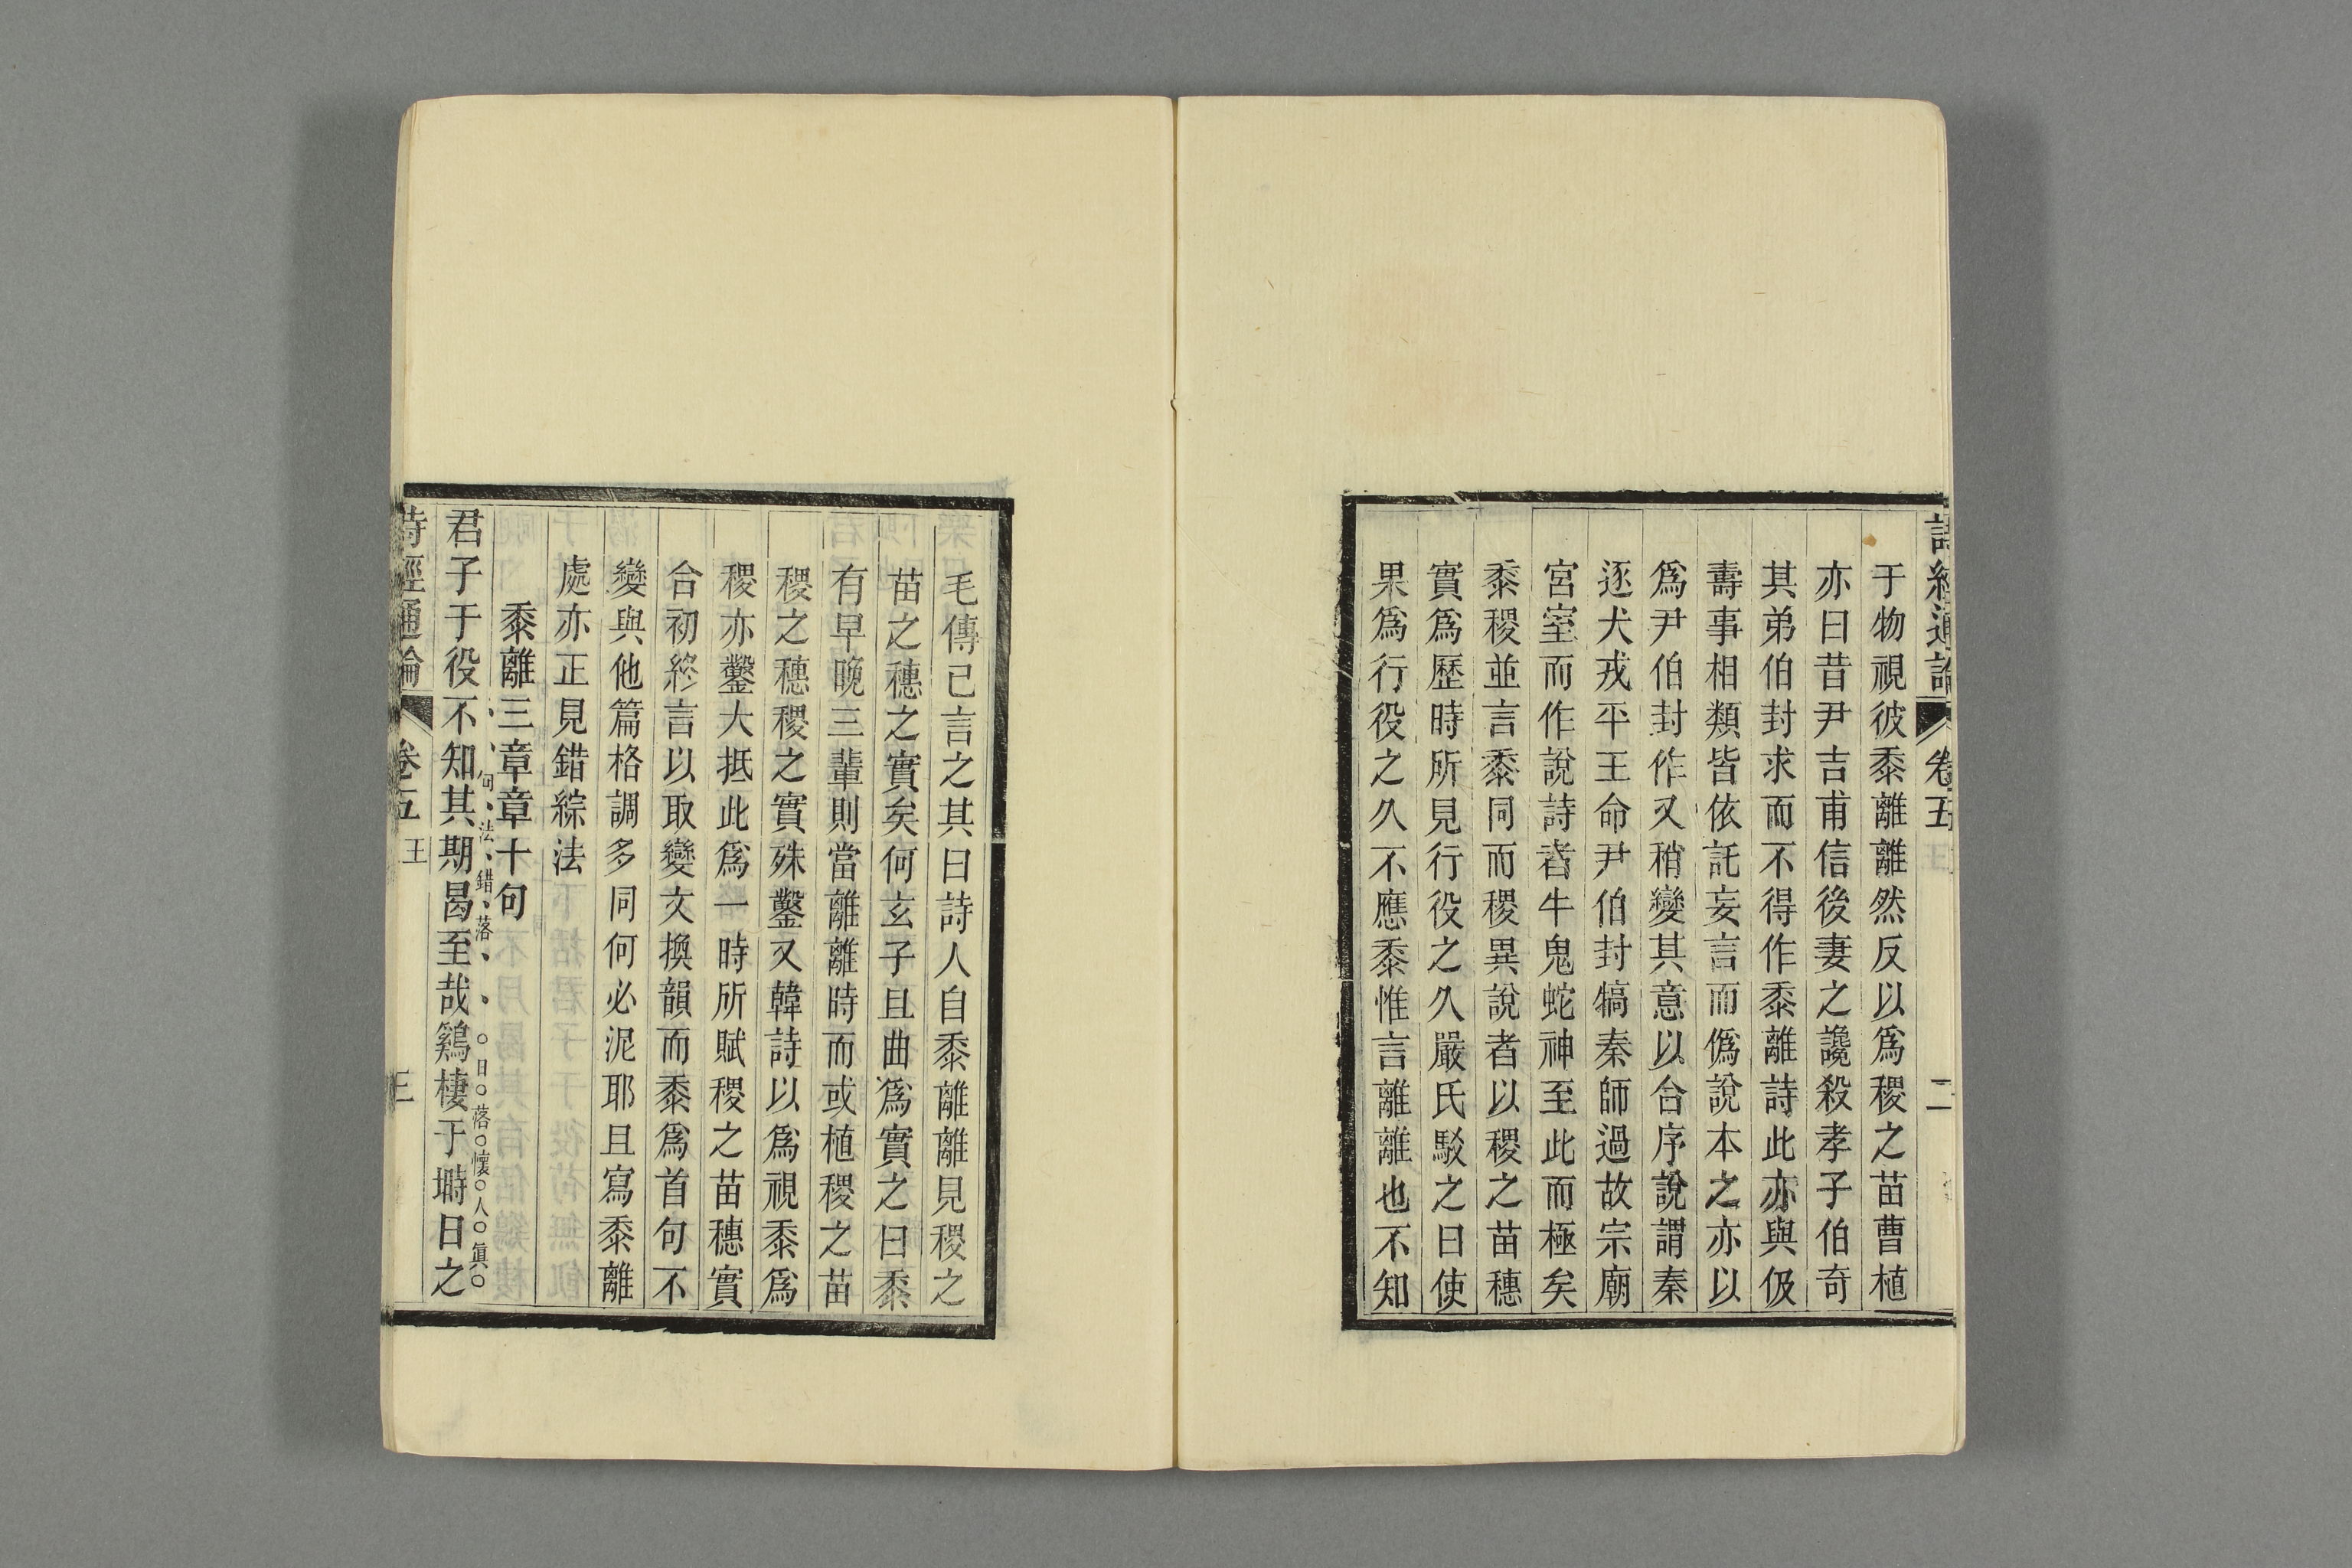 詩經通論 卷五 王 二
于物視彼黍離離然反以爲稷之苗曹植
亦曰昔尹吉甫信後妻之讒殺孝子伯奇
其弟伯封求而不得作黍離詩此亦與伋
壽事相類皆依託妄言而僞說本之亦以
爲尹伯封作又稍變其意以合序說謂秦
逐犬戎平王命尹伯封犒秦師過故宗廟
宮室而作說詩者牛鬼蛇神至此而極矣
黍稷並言黍同而稷異說者以稷之苗穗
實爲歷時所見行役之久嚴氏駁之曰使
果爲行役之久不應黍惟言離離也不知
毛傳已言之其曰詩人自黍離離見稷之
苗之穗之實矣何玄子且曲爲實之曰黍
有早晚三輩則當離離時而或植稷之苗
稷之穗稷之實殊鑿又韓詩以爲視黍爲
稷亦鑿大抵此爲一時所賦稷之苗穗實
合初終言以取變文換韻而黍爲首句不
變與他篇格調多同何必泥耶且寫黍離
處亦正見錯綜法
黍離三章章十句
君子于役不知其期曷至哉鷄棲于塒日之
句法錯落 日落懷人眞
詩經通論 卷五 王 三